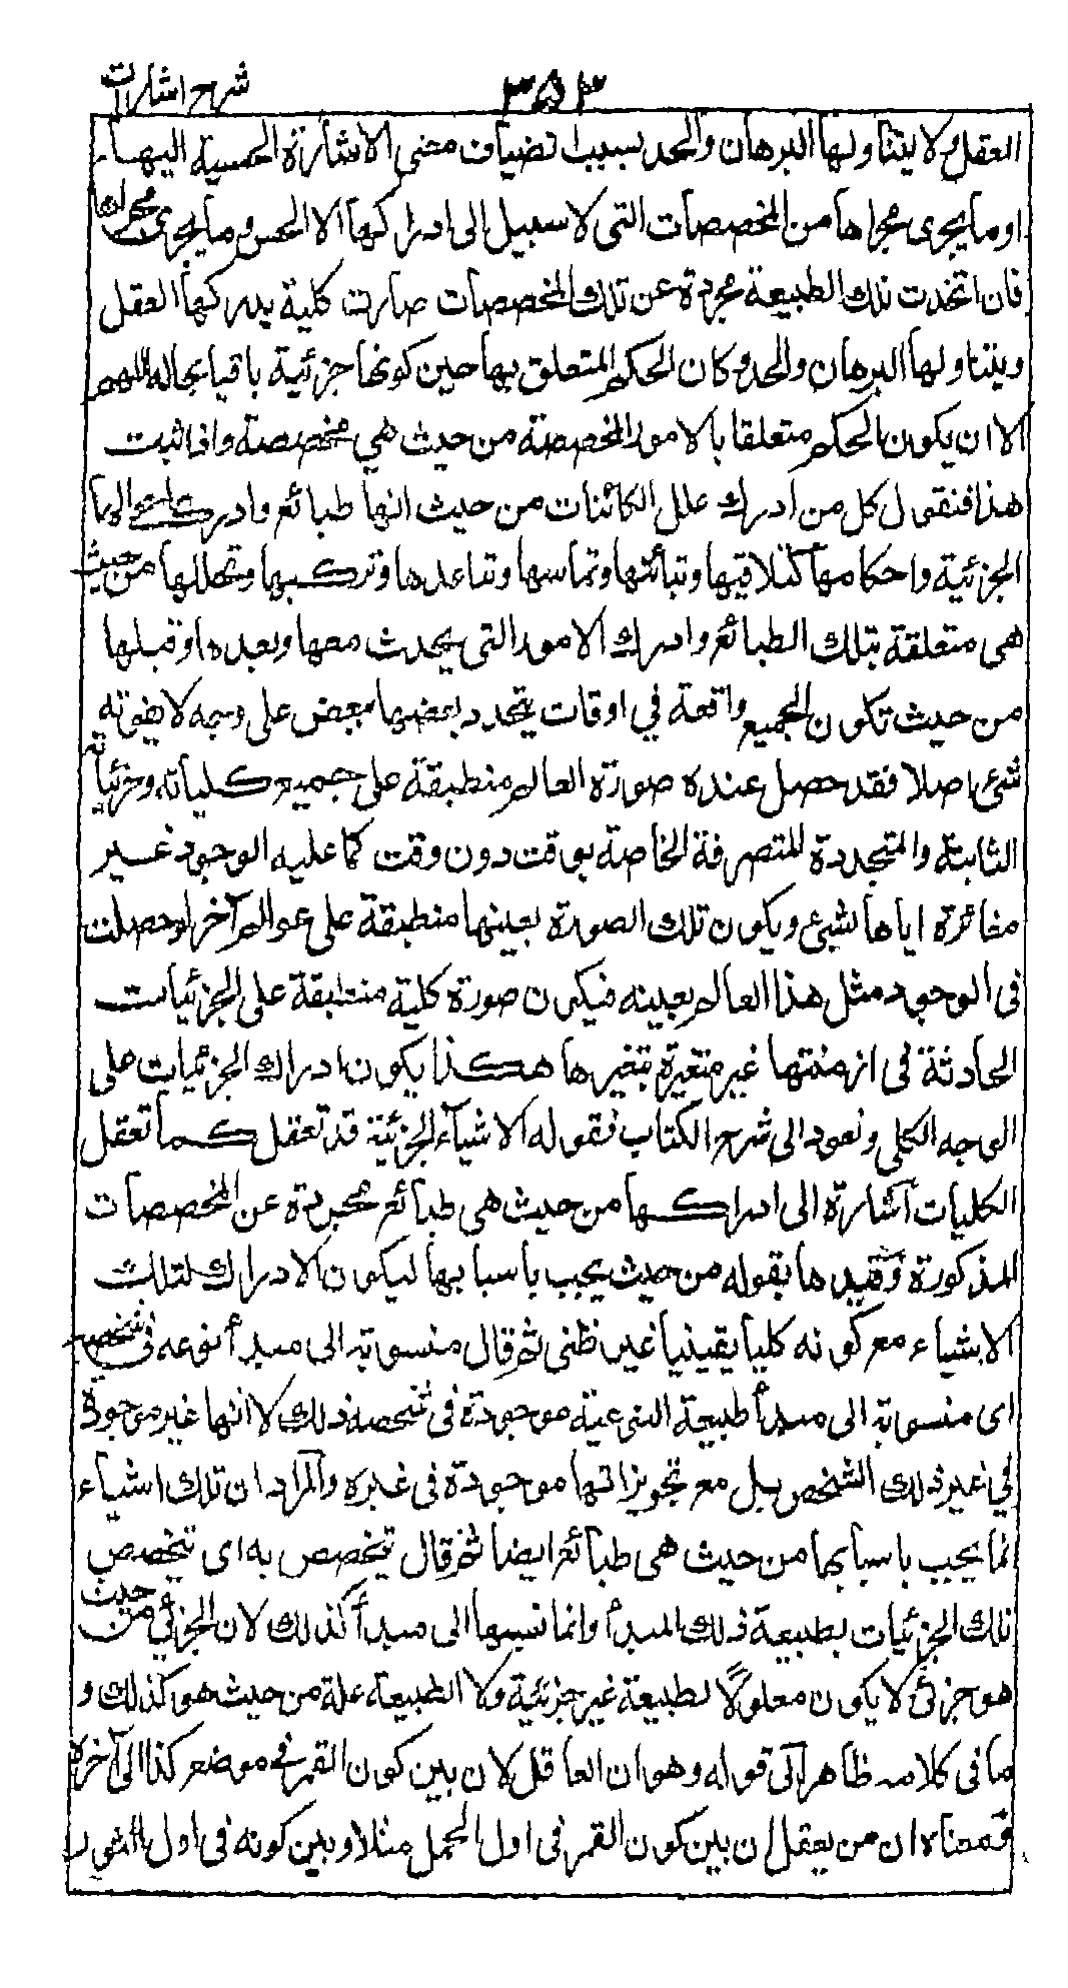 ۳۵۳ شرح اشارات
العقل ولا يتناولها البرهان والحد بسبب انضياف معنى الاشارة الحسية اليها
او ما يجرى مجراها من المخصصات التى لا سبيل الى ادراكها الا الحس وما يجرى مجراه
فان اتخذت تلك الطبيعة مجردة عن تلك المخصصات صارت كلية يدركها العقل
ويتناولها البرهان والحد وكان الحكم المتعلق بها حين كونها جزئية باقيا بحاله اللهم
الا ان يكون الحكم متعلقا بالامور المخصصة من حيث هي مخصصة واذا ثبت
هذا فنقول كل من ادرك علل الكائنات من حيث انها طبائع وادرك احوالها
الجزئية واحكامها كتلاقيها وتبائنها وتماسها وتباعدها وتركبها وتحللها من حيث
هى متعلقة بتلك الطبائع وادرك الامور التى يحدث معها وبعدها وقبلها
من حيث تكون الجميع واقعة في اوقات يتحدد بعضها ببعض على وجه لا يفوته
شيء اصلا فقد حصل عنده صورة العالم منطبقة على جميع كلياته وجزئياته
الثابتة والمتجددة المتصرفة الخاصة بوقت دون وقت كما عليه الوجود غير
مغائرة اياها لشيء ويكون تلك الصورة بعينها منطبقة على عوالم آخر لو حصلت
فى الوجود مثل هذا العالم بعينه فيكون صورة كلية منطبقة على الجزئيات
الحادثة فى ازمنتها غير متغيرة بتغيرها هكذا يكون ادراك الجزئيات على
الوجه الكلى ونعود الى شرح الكتاب فقوله الاشياء الجزئية قد تعقل كما تعقل
الكليات اشارة الى ادراكها من حيث هى طبائع مجردة عن المخصصات
المذكورة وقيدها بقوله من حيث يجب باسبابها ليكون الادراك لتلك
الاشياء مع كونه كليا يقينيا غير ظنى ثم قال منسوبة الى مبدأ نوعه فى شخصه
اى منسوبة الى مبدأ طبيعة النوعية موجودة فى شخصه ذلك لا انها غير موجودة
في غير ذلك الشخص بل مع تجويز انها موجودة فى غيره والمراد ان تلك اشياء
نما يجب باسبابها من حيث هى طبائع ايضا ثم قال تتخصص به اى تتخصص
تلك الجزئيات بطبيعة ذلك المبدأ وانما نسبها الى مبدأ كذلك لان الجزئي من حيث
هو جزئى لا يكون معلولا لطبيعة غير جزئية ولا الطبيعة علة من حيث هو كذلك و
ما فى كلامه ظاهر الى قوله وهو ان العاقل لان بين كون القمر في موضع كذا الى آخره
فمعناه ان من يعقل ان بين كون القمر فى اول الحمل مثلا وبين كونه فى اول الثور